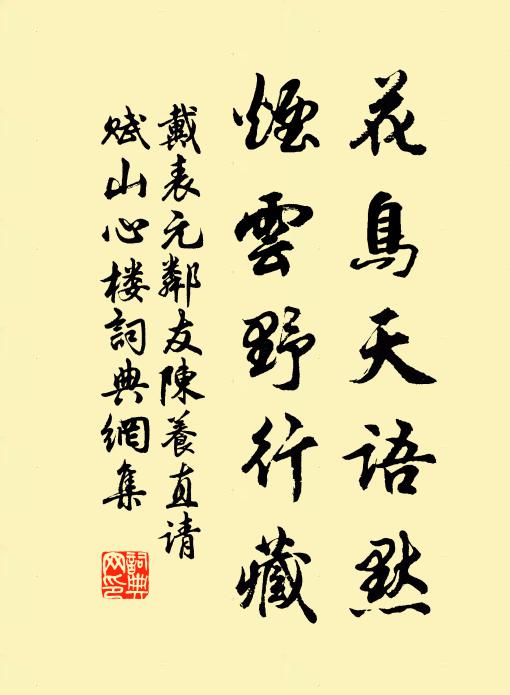 花鳥天語默
煙雲野行藏
戴表元鄰友陳養直请
赋山心楼詞典網集
詞典网印